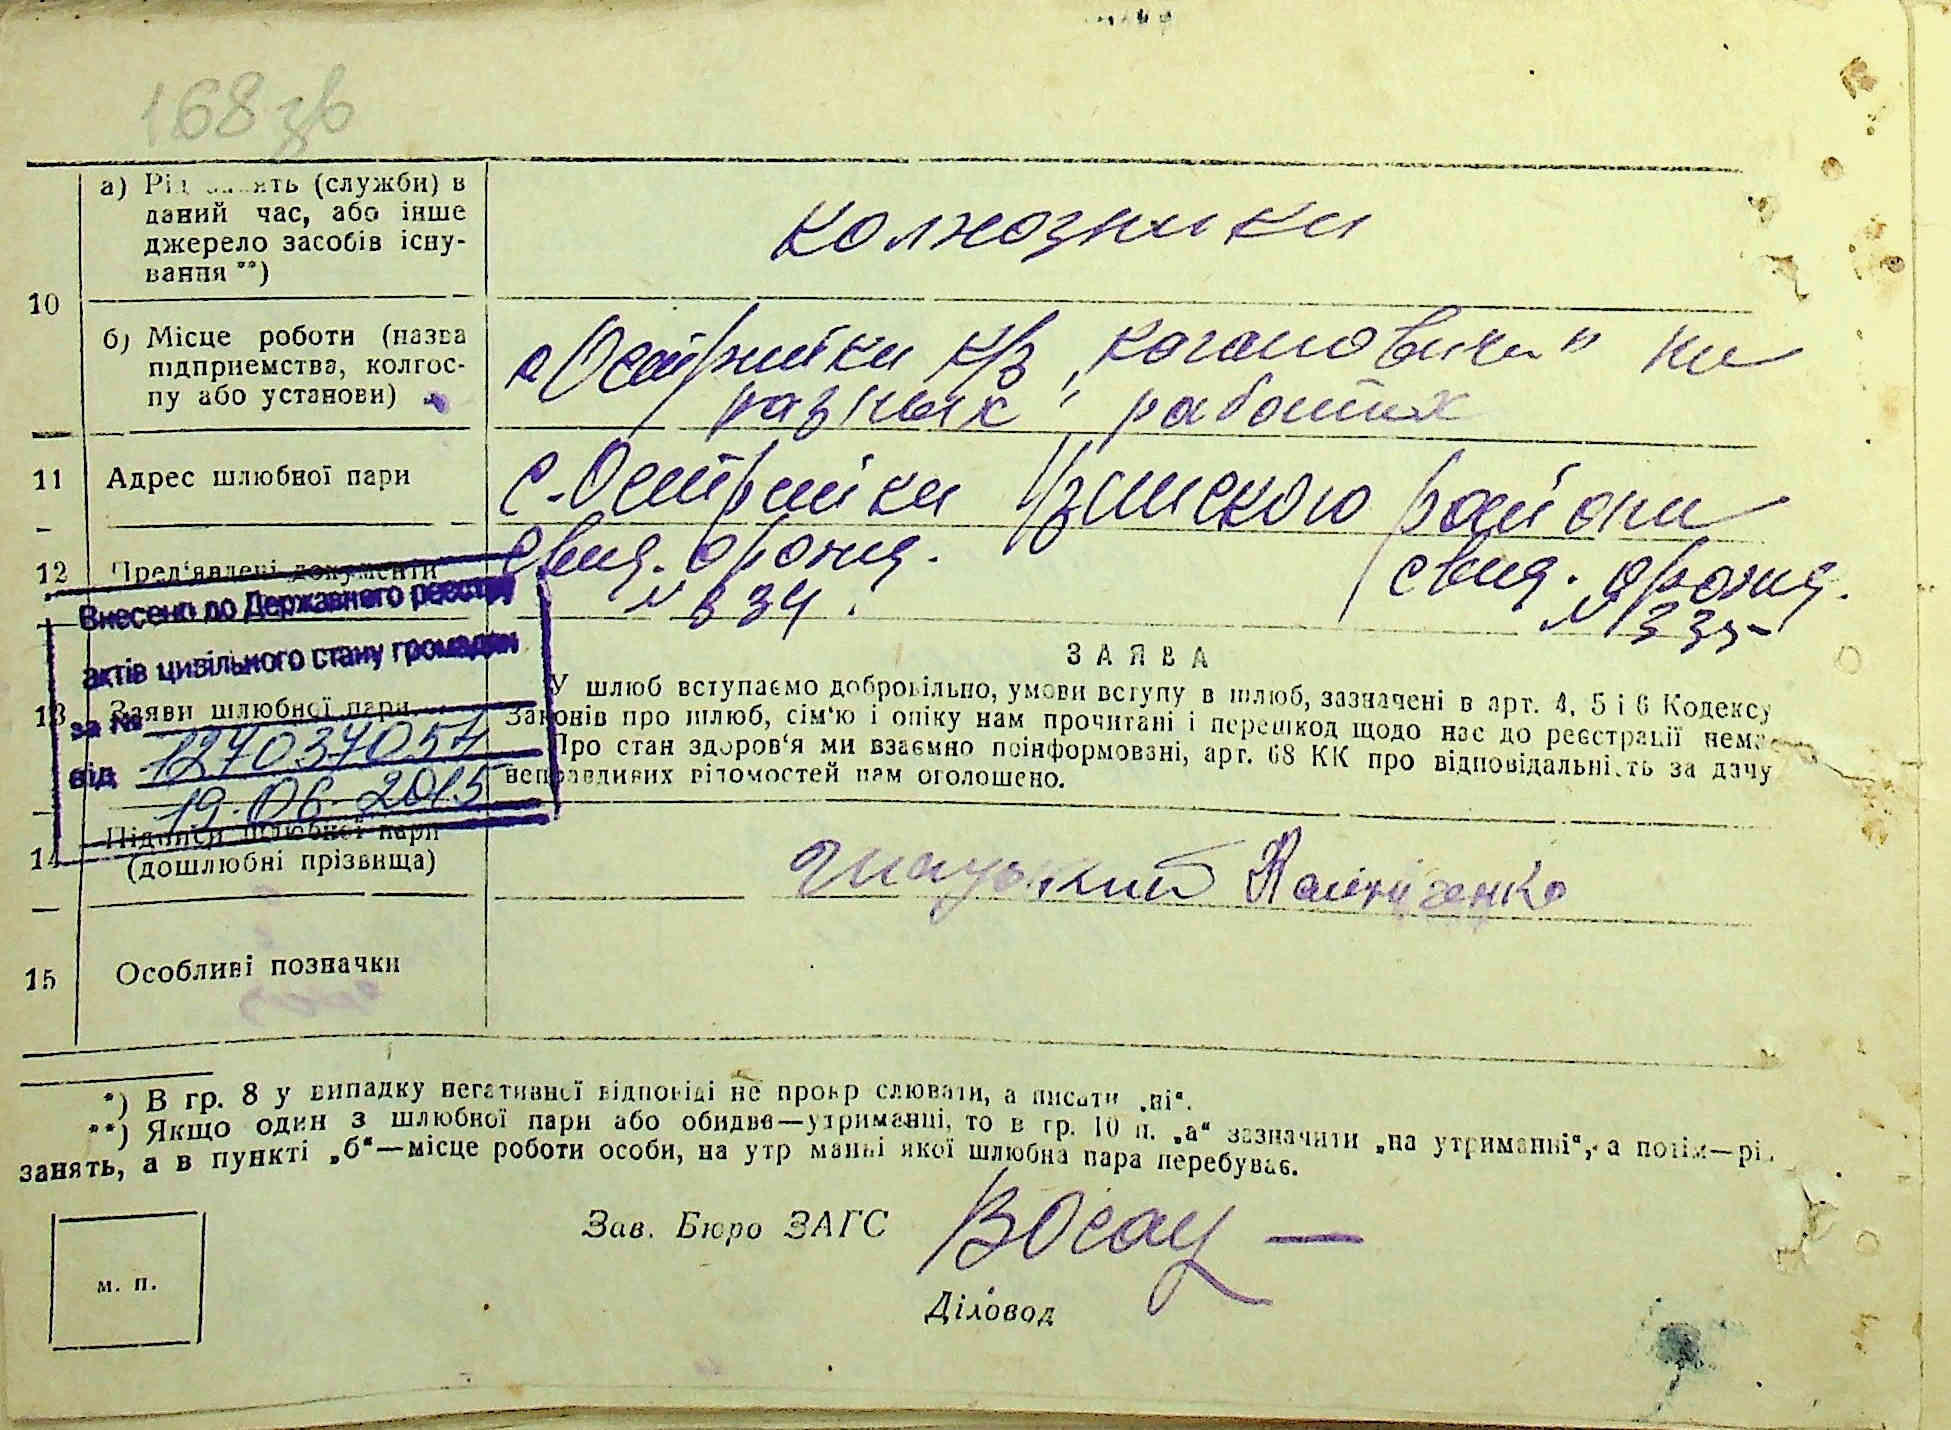 168 зв
10
а) Рід занять (служби) в
даний час, або інше
джерело засобів існу-
вання **)
колхозники
б) Місце роботи (назва
підприємства, колгос-
пу або установи)
с. Острийки к/з „Кагановича" на
разных работах
11
Адрес шлюбної пари
с. Острийки Узинского района
12
Пред'явлені документи
свид. о рожд.
№ 334.
свид. о рожд.
№ 335
Внесено до Державного реєстру
актів цивільного стану громадян
за №
від
19.06.2015
13
Заяви шлюбної пари
ЗАЯВА
У шлюб вступаємо добровільно, умови вступу в шлюб, зазначені в арт. 4, 5 і 6 Кодексу
Законів про шлюб, сім'ю і опіку нам прочитані і перешкод щодо нас до реєстрації нема
Про стан здоров'я ми взаємно поінформовані, арт. 68 КК про відповідальність за дачу
неправдивих відомостей нам оголошено.
14
Підписи шлюбної пари
(дошлюбні прізвища)
15
Особливі позначки
*) В гр. 8 у випадку негативної відповіді не прокр слювати, а писати „ні".
**) Якщо один з шлюбної пари або обидва—утриманці, то в гр. 10 п. „а" зазначити „на утриманні", а потім—рі
занять, а в пункті „б"—місце роботи особи, на утр манні якої шлюбна пара перебуває.
Зав. Бюро ЗАГС
Діловод
м. п.